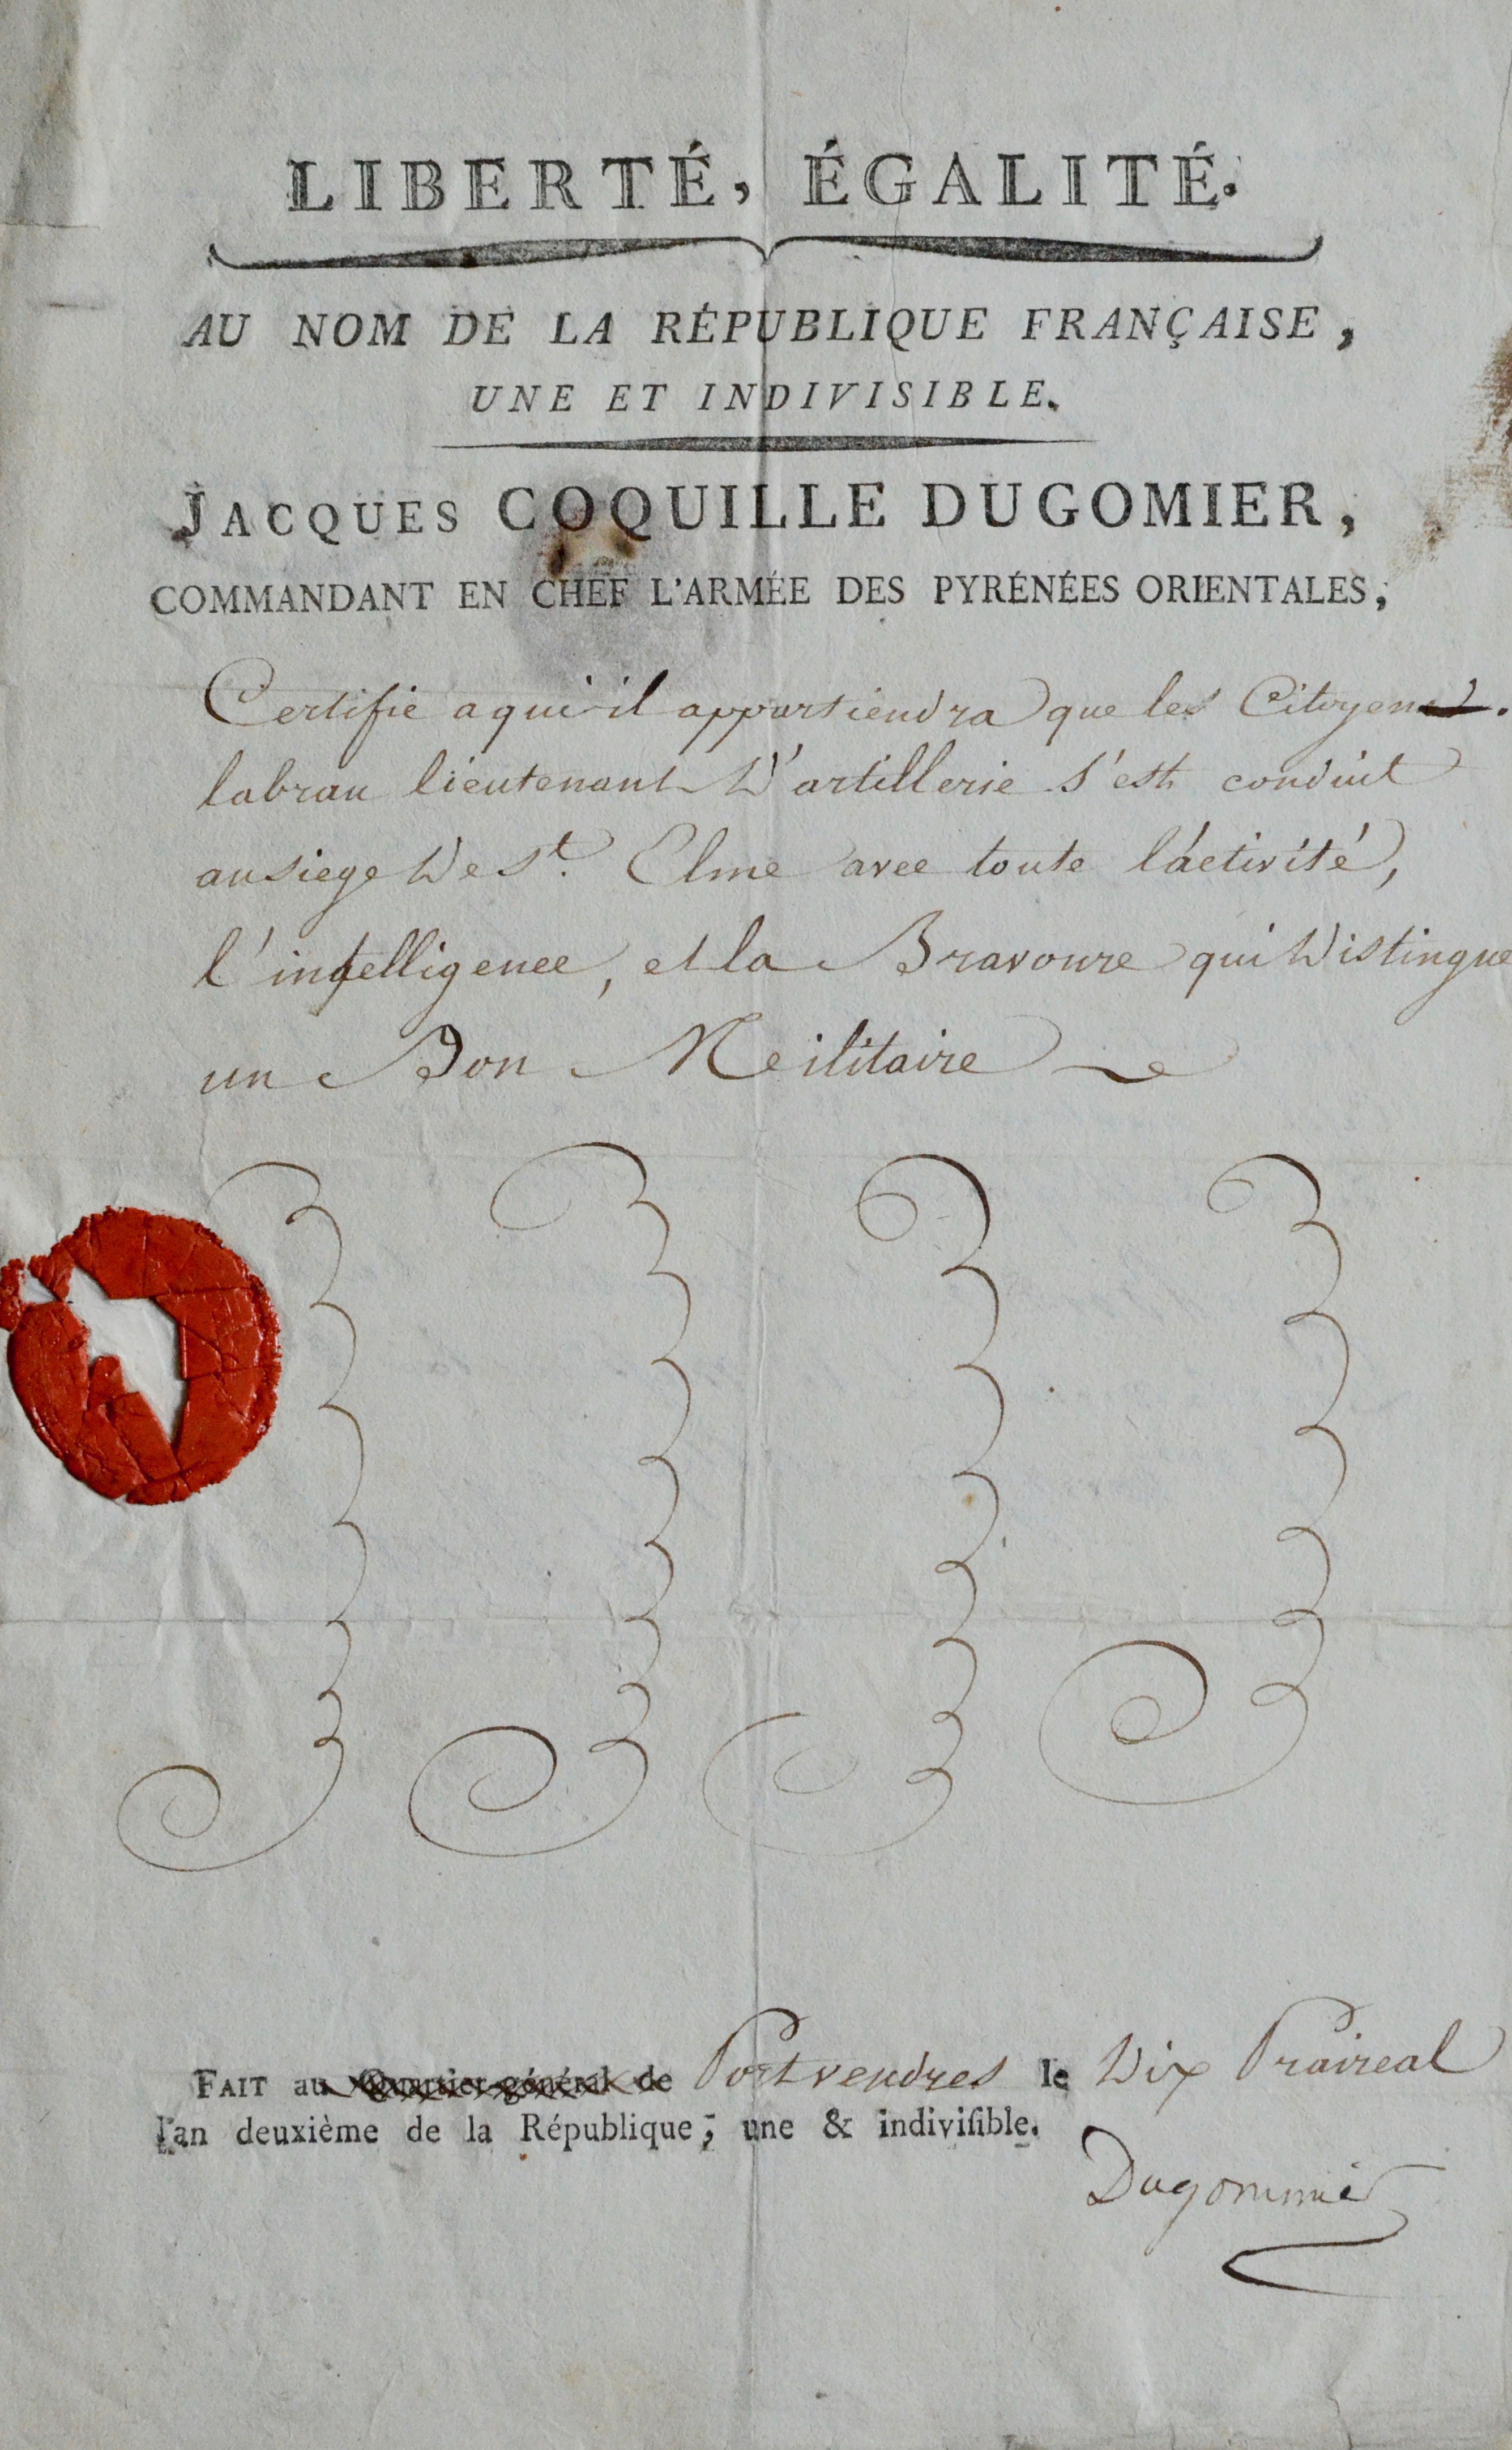 LIBERTÉ, ÉGALITÉ.
AU NOM DE LA RÉPUBLIQUE FRANÇAISE,
UNE ET INDIVISIBLE.
JACQUES COQUILLE DUGOMIER,
COMMANDANT EN CHEF L'ARMÉE DES PYRÉNÉES ORIENTALES,
Certifie a qui il appartiendra que les Citoyen
labrau lieutenant d'artillerie s'est conduit
au siege de St. Elme avec toute l'activité,
l'intelligence, et la Bravoure qui distingue
un Bon Meilitaire
FAIT au Quartier-général de Portvendres le dix Praireal
l'an deuxième de la République, une & indiviſible.
Dugommier